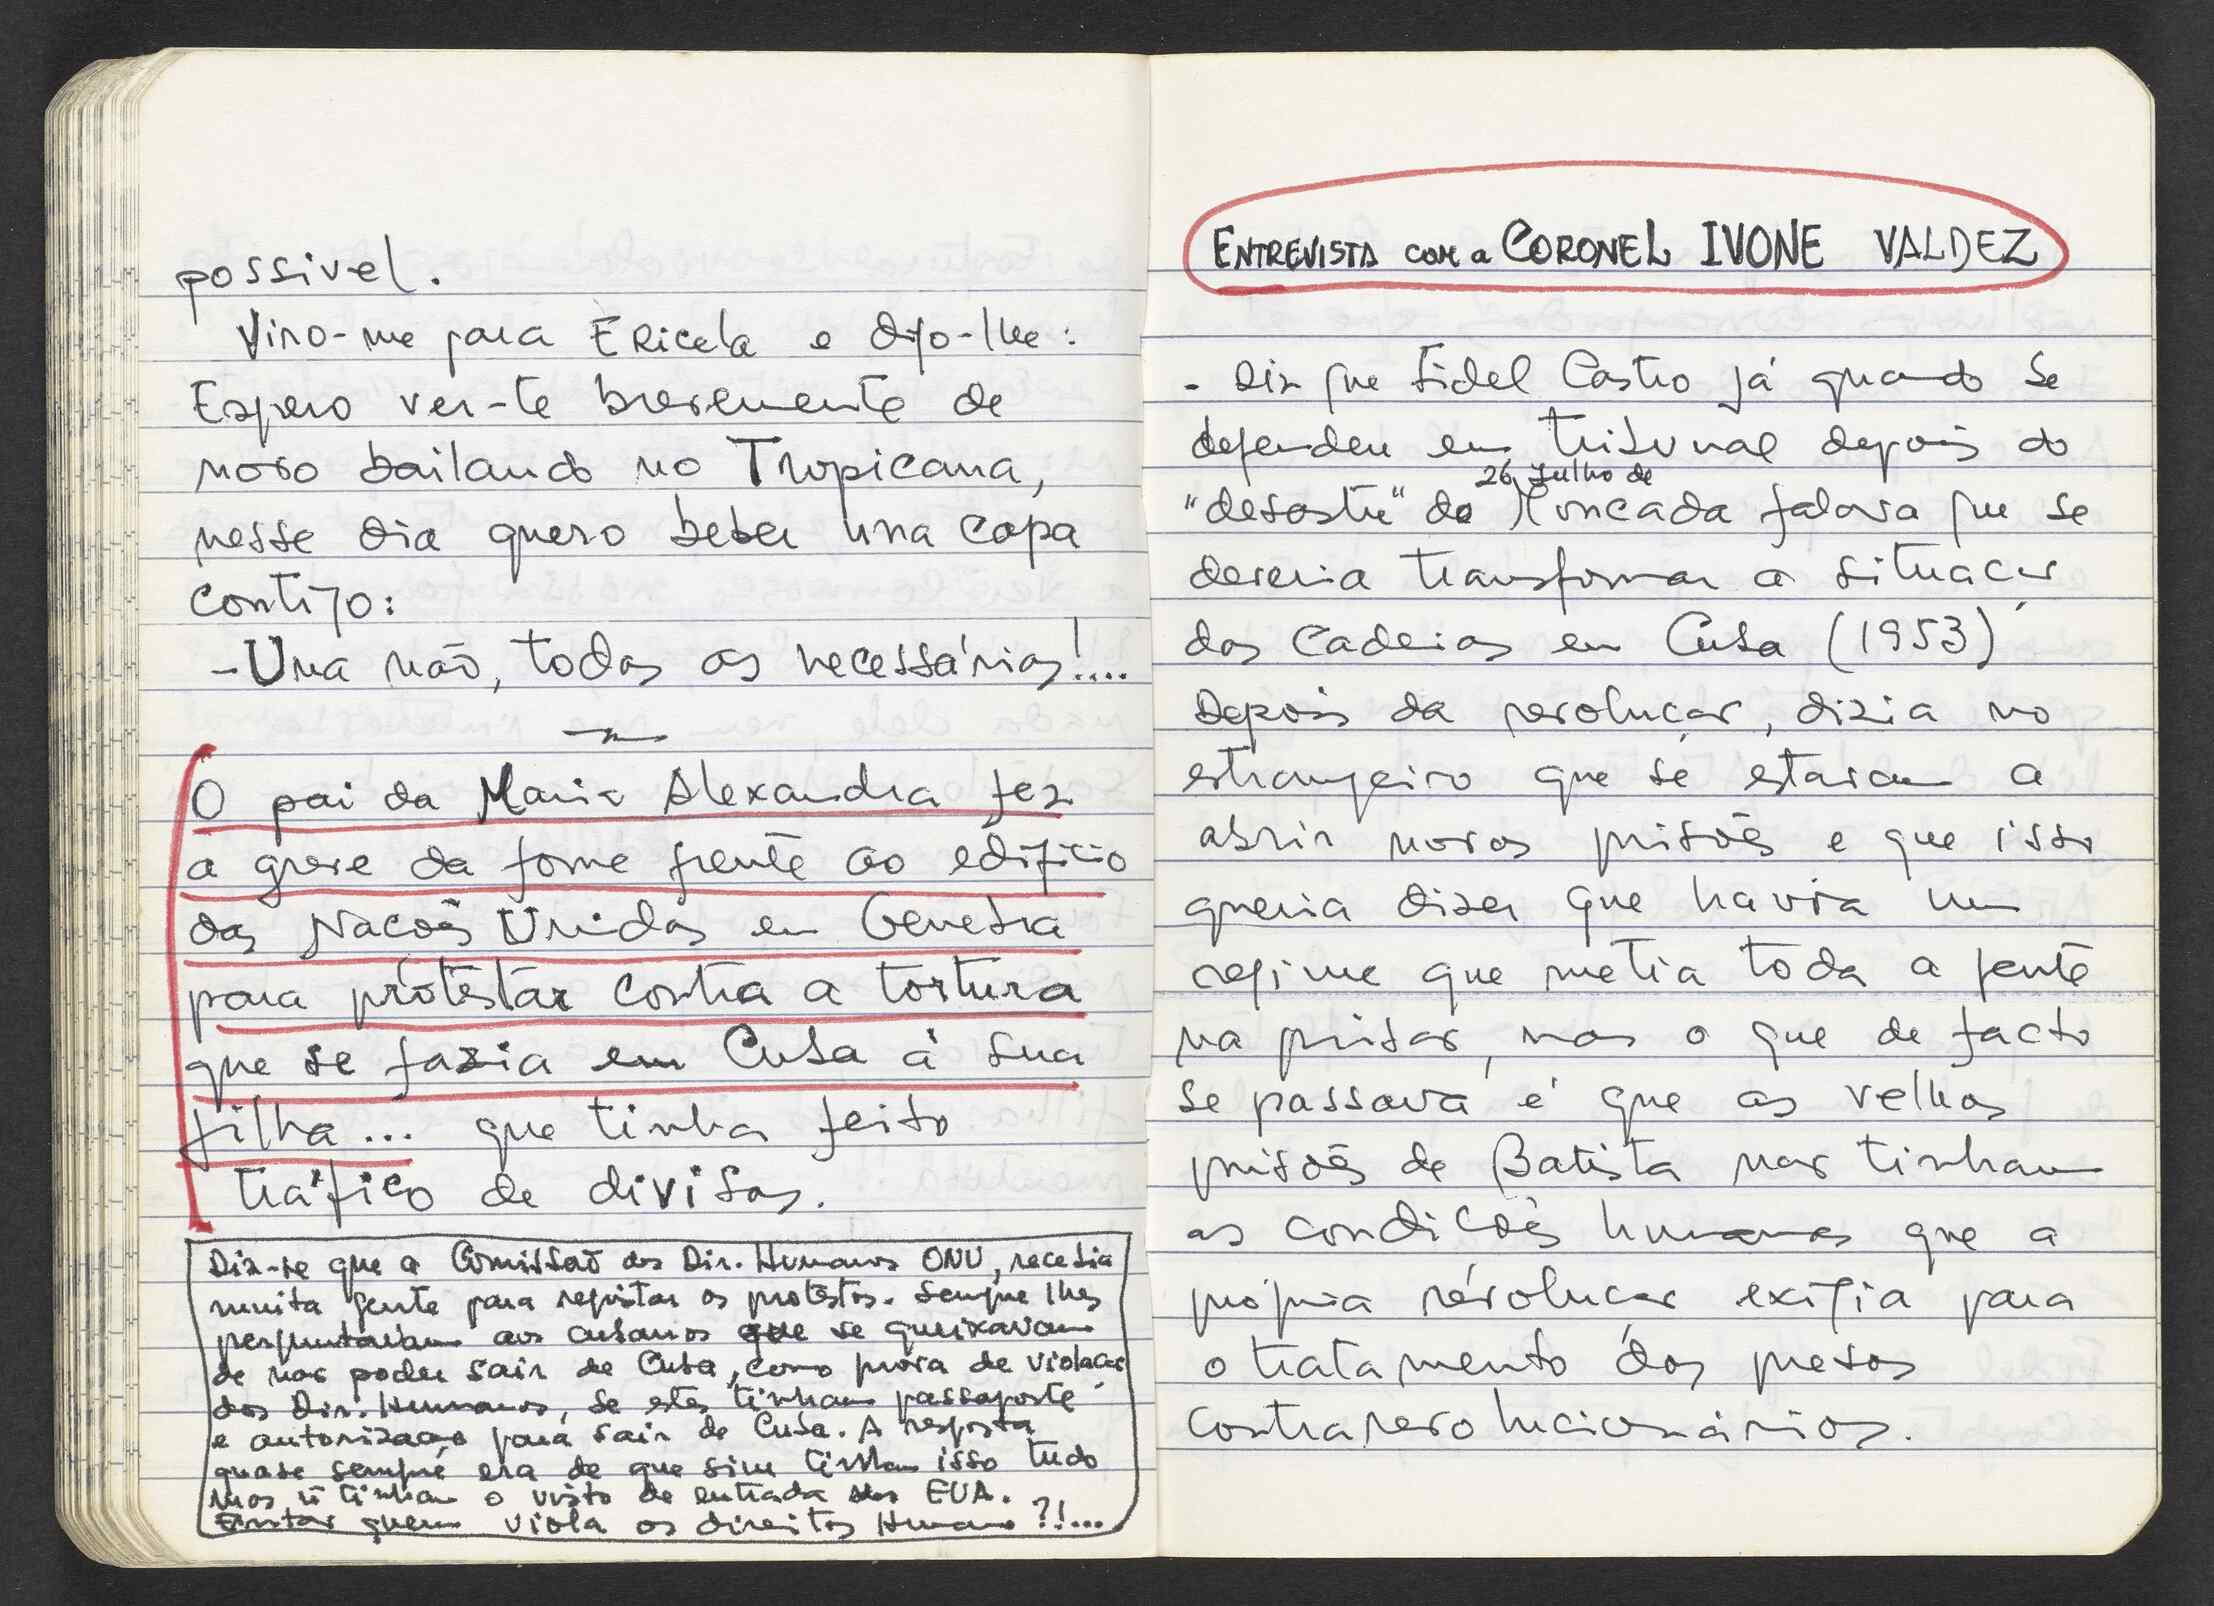 possivel.
Viro-me para Ericela e digo-lhe:
Espero ver-te brevemente de
novo bailando no Tropicana,
nesse dia quero beber una copa
contigo:
- Una não, todas as necessárias!....
O pai da Maria Alexandra fez
a greve da fome frente ao edificio
das Nacões Unidas em Genebra
para protestar contra a tortura
que se fazia em Cuba à sua
filha... que tinha feito
tráfico de divisas.
Diz-se que a Comissaõ dos Dir. Humanos ONU, recebia
muita gente para registar os protestos. Sempre lhes
perguntavam aos cubanos que se queixavam
de não poder sair de Cuba, como prova de violação
dos Dir. Humanos, se estes tinham passaporte
e autorizacao para sair de Cuba. A resposta
quase sempre era de que sim tinham isso tudo
mas ñ tinham o visto de entrada dos EUA.
Entao quem viola os direitos Humanos ?!...
ENTREVISTA com a CORONEL IVONE VALDEZ
- Diz que Fidel Castro já quando se
defendeu em tribunal depois do
26 Julho de
"desastre" de Moncada falava que se
deveria transformar a situação
das cadeias em Cuba (1953)
Depois da revolução, dizia no
estrangeiro que se estavam a
abrir novas prisões e que isso
queria dizer que havia um
regime que metia toda a gente
na prisao, mas o que de facto
se passava é que as velhas
prisões de Batista nao tinham
as condicões humanas que a
própria revolucao exigia para
o tratamento dos presos
contrarevolucionários.